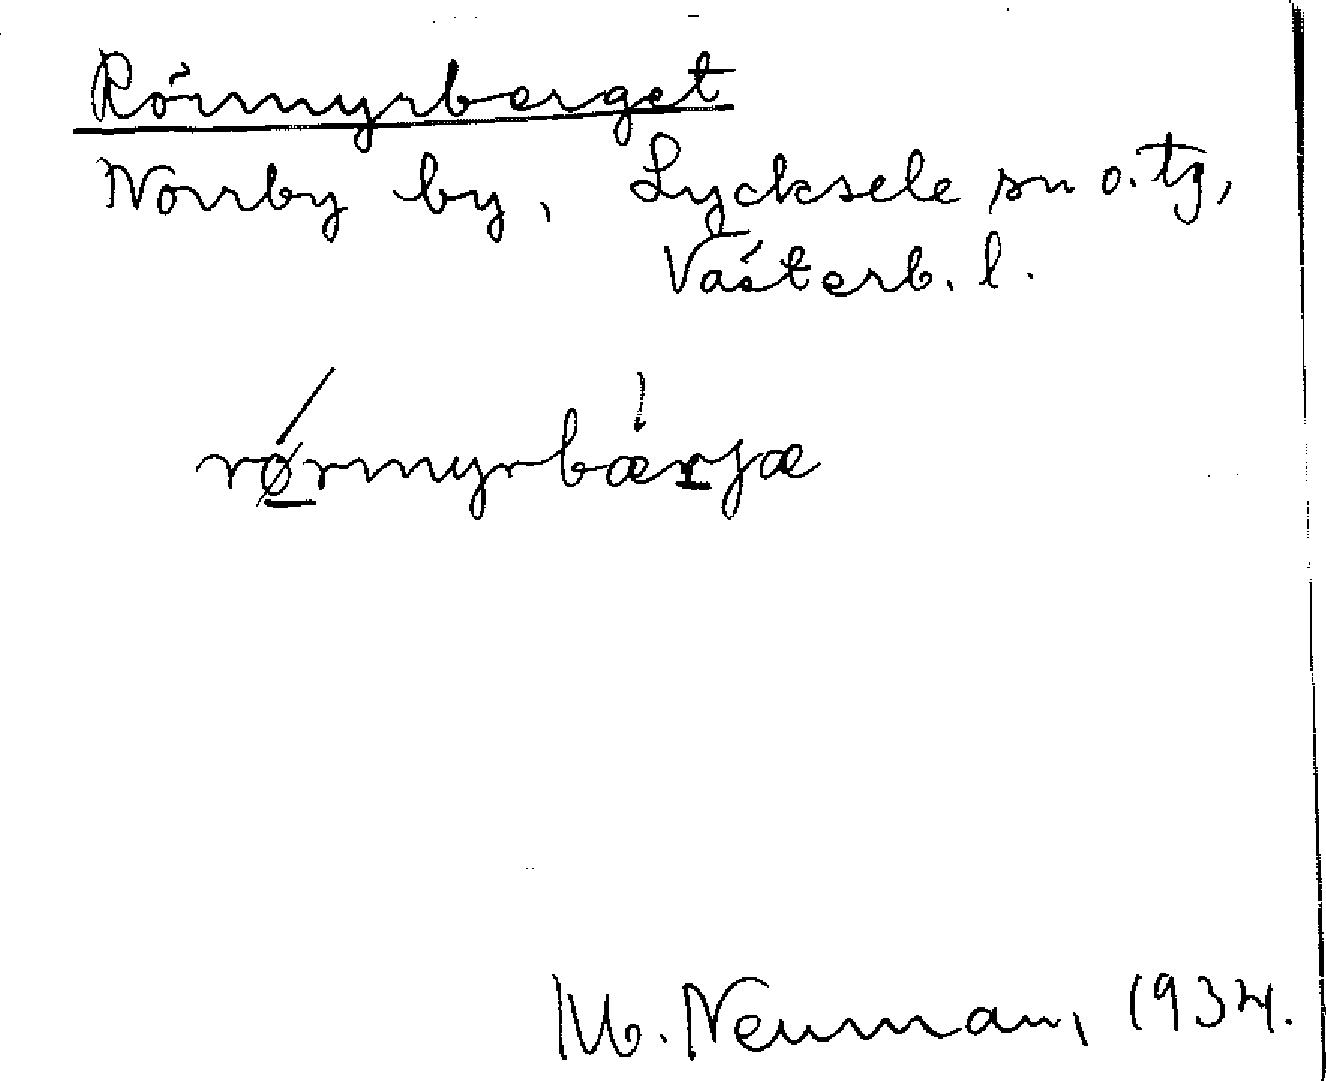 Rörmyrberget
Norrby by, Lycksele sn o. tg,
Västerb. l.
rørmyrbærjæ
M. Neuman, 1934.